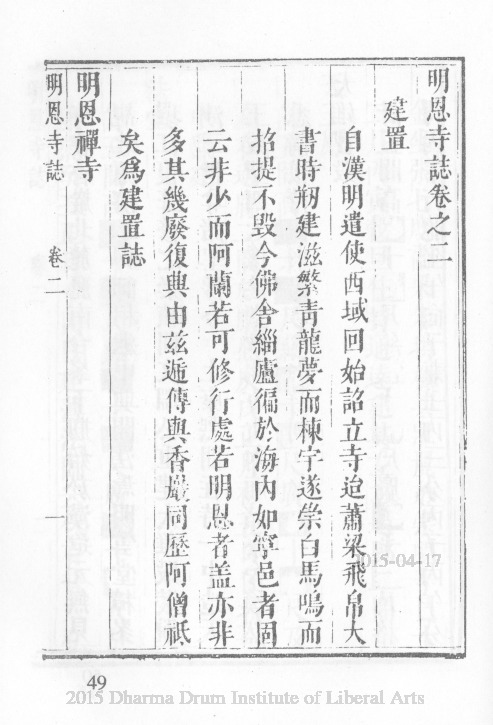 明恩寺誌卷之二
建置
自漢明遣使西域回始詔立寺迨蕭梁飛帛大
書時剏建滋繁青龍夢而棟宇遂崇白馬鳴而
招提不毀今佛舍緇廬徧於海內如寧邑者固
云非少而阿蘭若可修行處若明恩者蓋亦非
多其幾廢復興由茲遞傳與香嚴同歷阿僧祇
矣爲建置誌
明恩禪寺
明恩寺誌 卷二 一
2015-04-17
49
2015 Dharma Drum Institute of Liberal Arts